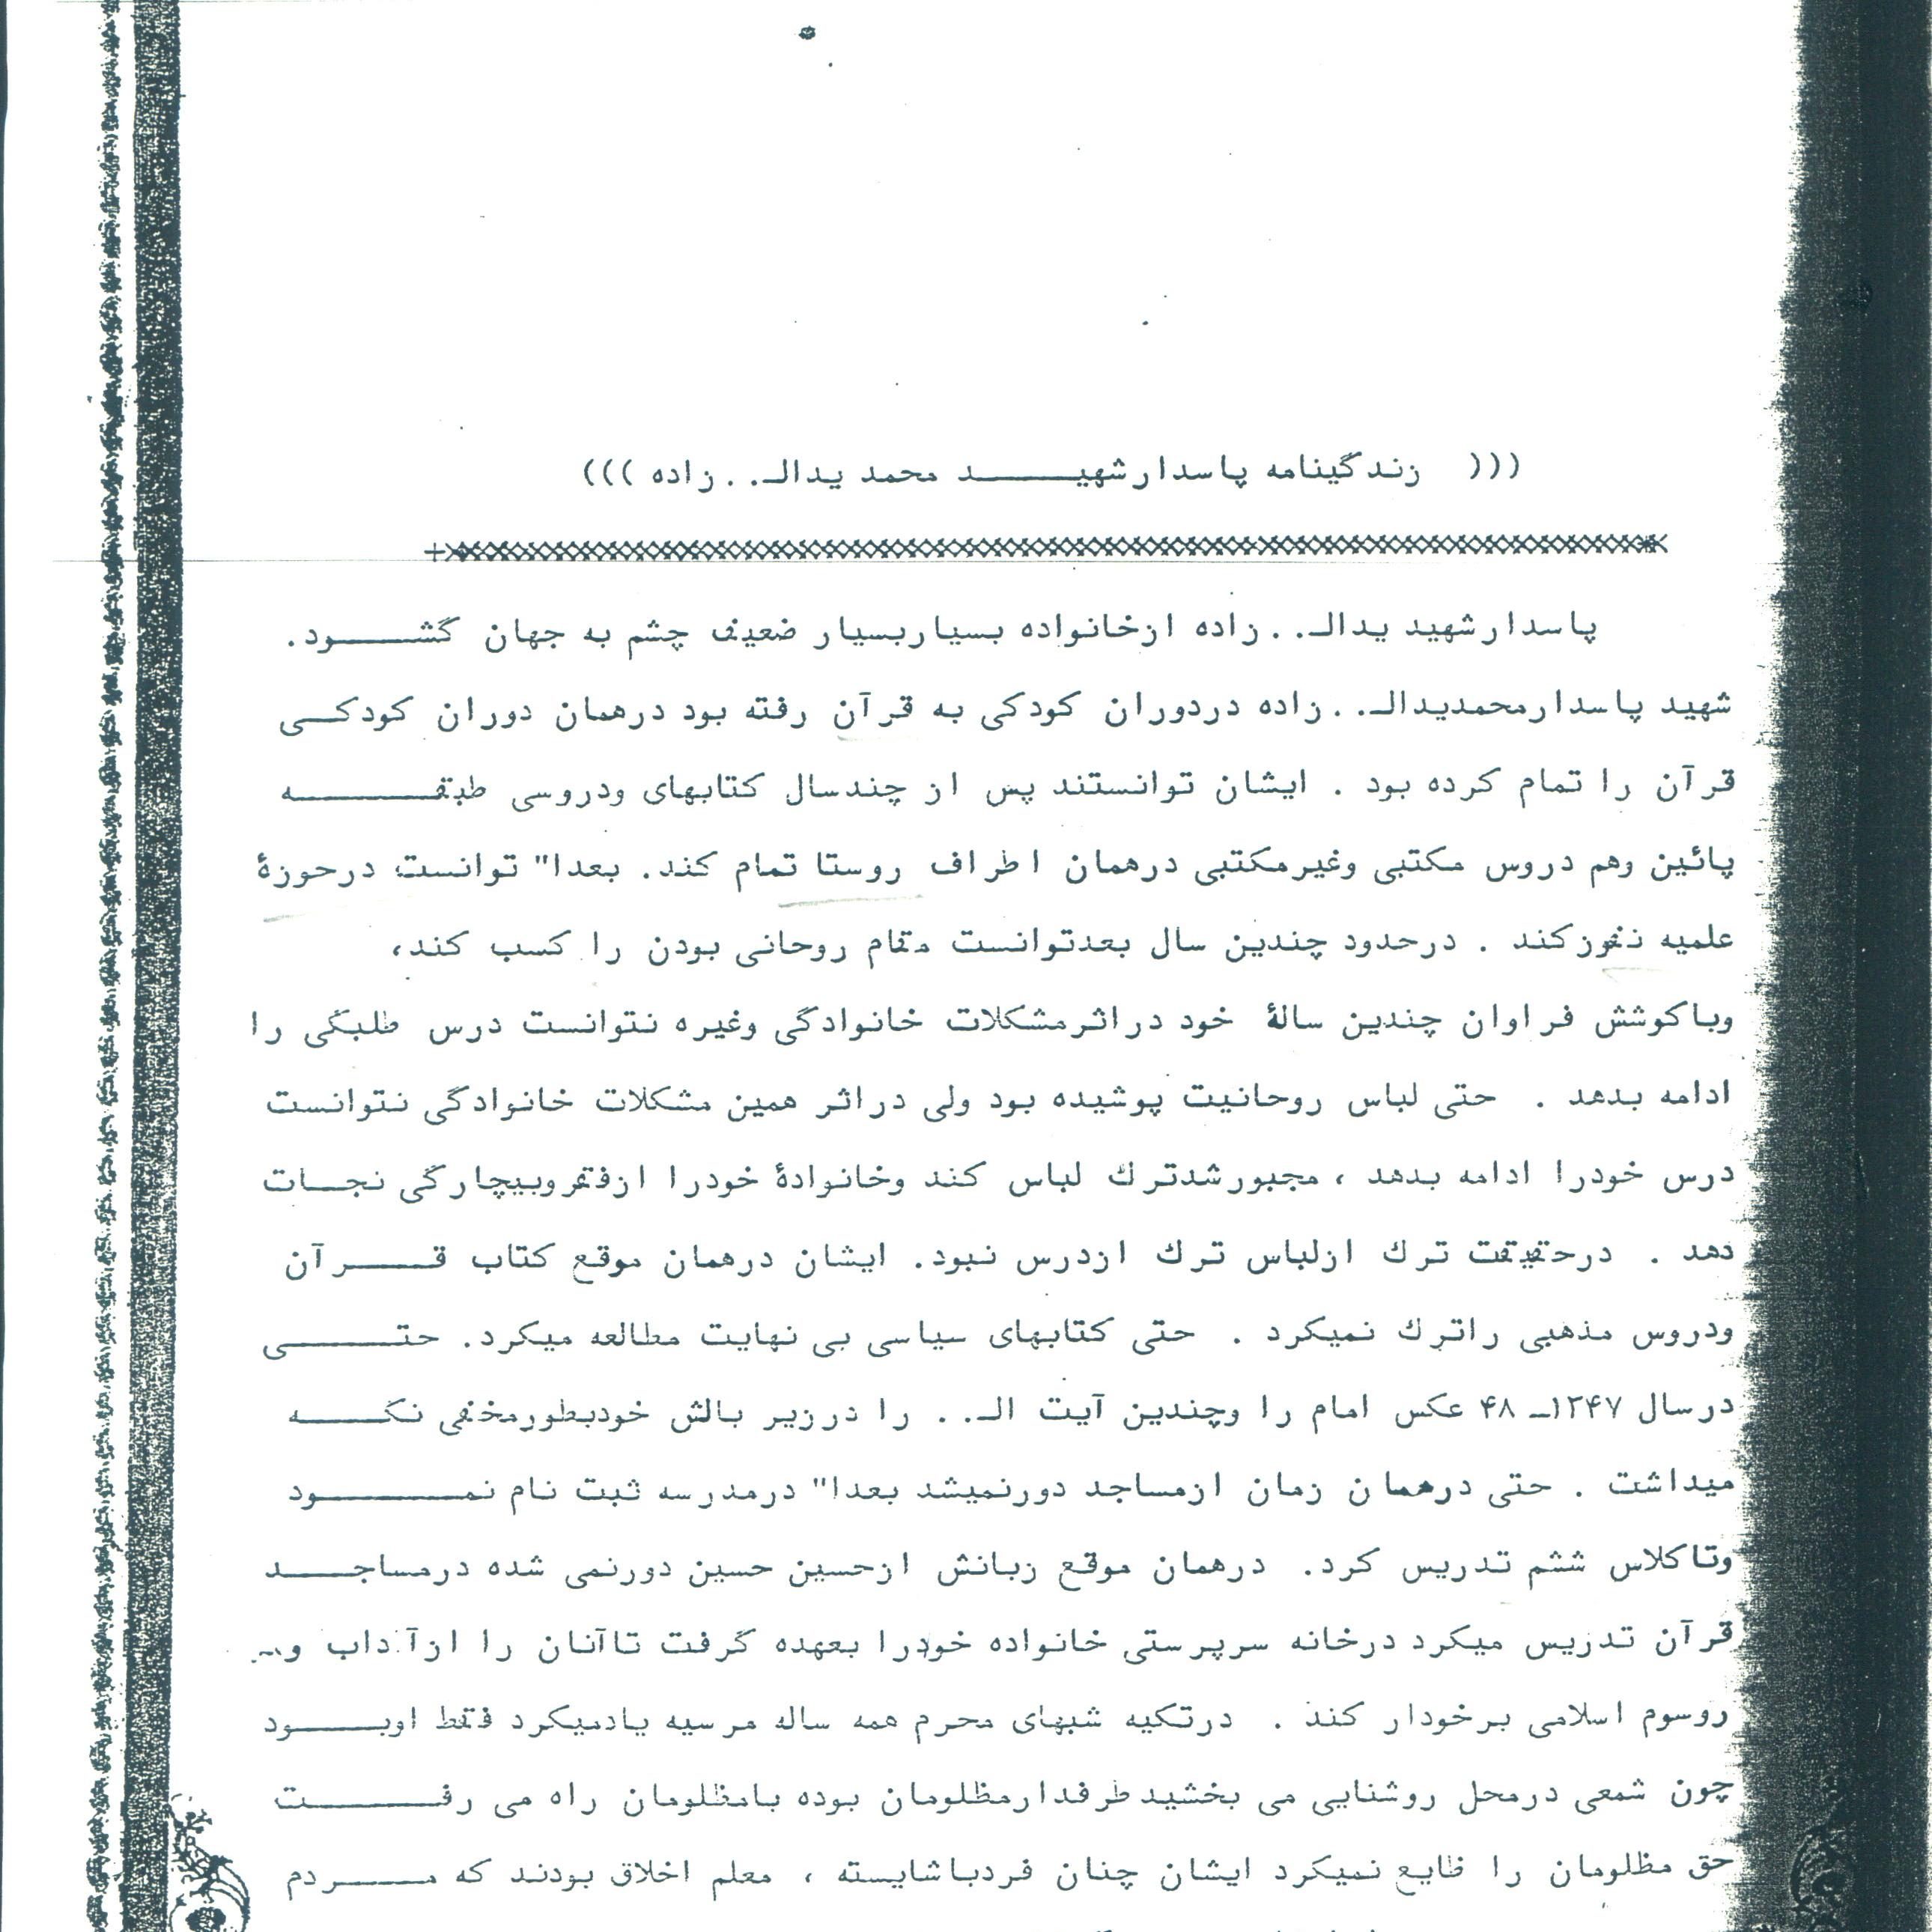 ((( زندگینامه پاسدارشهیـــد محمد یدالـ.. زاده )))
پاسدارشهید یدالـ.. زاده ازخانواده بسیاربسیار ضعیف چشم به جهان گشـــود.
شهید پاسدارمحمدیدالـ.. زاده دردوران کودکی به قرآن رفته بود درهمان دوران کودکــی
قرآن را تمام کرده بود . ایشان توانستند پس از چندسال کتابهای ودروسی طبقـــــه
پائین وهم دروس مکتبی وغیرمکتبی درهمان اطراف روستا تمام کند. بعدا" توانست درحوزهٔ
علمیه نفوزکند . درحدود چندین سال بعدتوانست مقام روحانی بودن را کسب کند،
وباکوشش فراوان چندین سالهٔ خود دراثرمشکلات خانوادگی وغیره نتوانست درس طلبگی را
ادامه بدهد . حتی لباس روحانیت پوشیده بود ولی دراثر همین مشکلات خانوادگی نتوانست
درس خودرا ادامه بدهد ، مجبورشدترك لباس کند وخانوادهٔ خودرا ازفقروبیچارگی نجــات
دهد . درحقیقت ترك ازلباس ترك ازدرس نبود. ایشان درهمان موقع کتاب قـــرآن
ودروس مذهبی راترك نمیکرد . حتی کتابهای سیاسی بی نهایت مطالعه میکرد. حتــــی
درسال ۱۳۴۷ـ ۴۸ عکس امام را وچندین آیت الـ.. را درزیر بالش خودبطورمخفی نگــــه
میداشت . حتی درهمان زمان ازمساجد دورنمیشد بعدا" درمدرسه ثبت نام نمـــــود
وتاکلاس ششم تدریس کرد. درهمان موقع زبانش ازحسین حسین دورنمی شده درمساجـــد
قرآن تدریس میکرد درخانه سرپرستی خانواده خودرا بعهده گرفت تاآنان را ازآداب و
روسوم اسلامی برخودار کند . درتکیه شبهای محرم همه ساله مرسیه یادمیکرد فقط اوبـــود
چون شمعی درمحل روشنایی می بخشید طرفدارمظلومان بوده بامظلومان راه می رفــــت
حق مظلومان را ظایع نمیکرد ایشان چنان فردباشایسته ، معلم اخلاق بودند که مـــردم